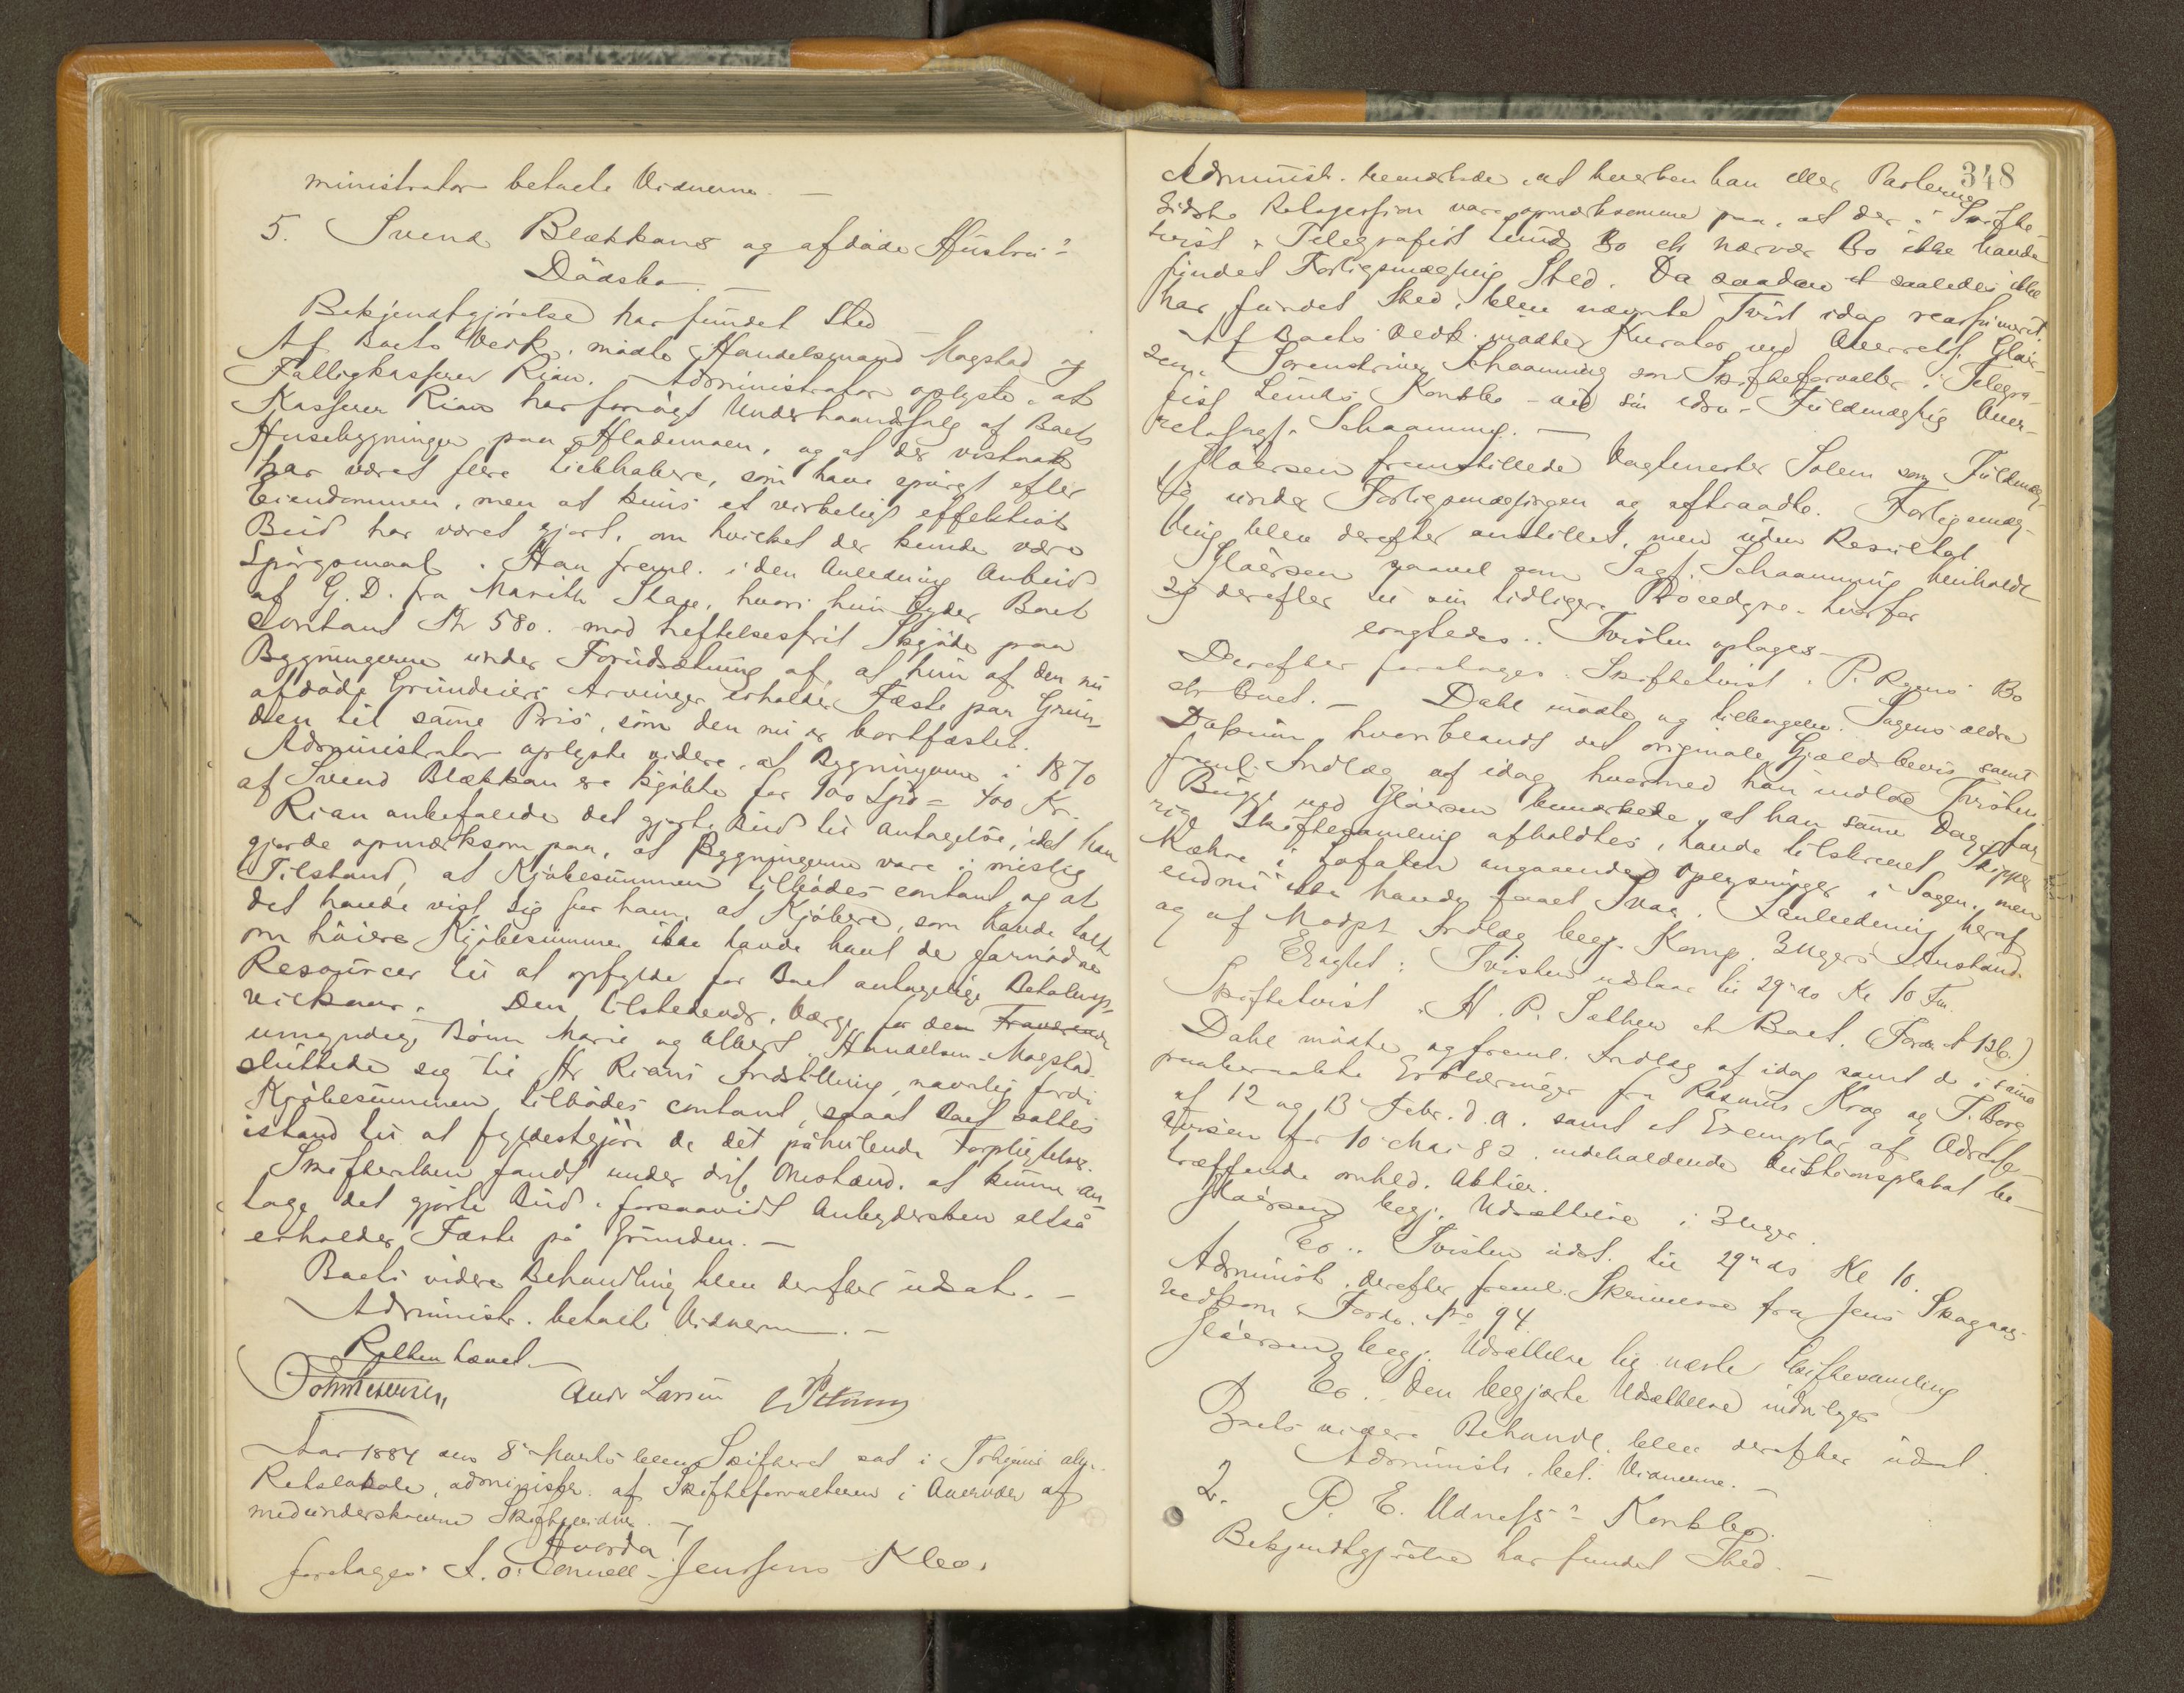 ministrator betalte Vidnerne. —
5. Svend Blekkans og afdøde Hustru's
Dødsbo. —
Bekjendtgjørelse har fundet Sted
Af Boets Vedk. mødte Handelsmand Magstad og
Fattigkasserer Rian. Administrator oplyste, at
Kasserer Rian har forsøgt Underhaandssalg af Boets
Husebygninger paa Hlademoen, og at der vistnok
har været flere Liebhabere, som have spurgt efter
Eiendommen, men at kuns et virkeligt effektivt
Bud har været gjort, om hvilket der kunde være
Spørgsmaal. Han freml. i den Anledning Anbud
af G. D. fra Marith Stape, hvori hun byder Boet
contant Kr 580. mod heftelsesfrit Skjøde paa
Bygningerne under Forudsætning af, at hun af den nu
afdøde Grundeiers Arvinger erholder Fæste paa Grun-
den til samme Pris, som den nu er bortfæstet.
Administrator oplyste videre, at Bygningerne i 1870
af Svend Blekkan ere kjøbte for 100 Spd = 400 Kr.
Rian anbefalede det gjorte Bud til Antagelse, idet han
gjorde opmærksom paa, at Bygningerne vare i mislig
Tilstand, at Kjøbesummen tilbødes contant, og at
det havde vist sig for ham, at Kjøbere, som havde talt
om høiere Kjøbesummer ikke havde havt de fornødne
Resourcer til at opfylde for Boet antagelige Betalings-
vilkaar. Den tilstedevær. Værge for den Fraværende
umyndige Børn Marie og Albert, Handelsm. Magstad
sluttede sig til Hr Rians Indstilling, navnlig fordi
Kjøbesummen tilbødes contant, saaat Boet sattes
istand til at fyldestgjøre de det påhvilende Forpligtelser.
Skifteretten fandt under disse Omstænd. at kunne an-
tage det gjorte Bud, forsaavidt Anbydersken altså
erholder Fæste på Grunden. —
Boets videre Behandling blev derefter udsat. —
Administr. betalte Vidnerne. —
Retten hævet.
Andr Larsen
Aar 1884 den 8de Marts blev Skifteret sat i Tr.hjems alm.
Retslokale, administr. af Skifteforvalteren i Overvær af
medunderskrevne Skiftevidner. —
Hvorda
foretoges: 1. O. Connell-Jenssens Kbo.
348
Administ. bemærkede, at hverken han eller Parterne
sidste Retssession vare opmærksomme paa, at der i Skifte-
tvist: Telegrafist Lunds Bo ctr nærvær. Bo ikke havde
fundet Forligsmægling Sted. Da saadan et saaledes ikke
har fundet Sted, blev nævnte Tvist idag reassumeret.
Af Boets Vedk. mødte Kurator ved Overretss. Gløer-
sen. Sorenskriver Schaanning som Skifteforvalter i Telegra-
fist Lunds Konkbo — ved sin edsv. Fuldmægtig Over-
retssagf. Schaanning. —
Gløersen fremstillede Vagtmester Solem som Fuldmæg-
tig under Forligsmæglingen og aftraadte. Forligsmæg-
ling blev derefter anstillet, men uden Resultat.
Gløersen saavel som Sagf. Schaanning henholdt
sig derefter til sin tidligere Procedyre, hvorfor
eragtedes: Tvisten optages —
Derefter foretoges Skiftetvist: P. Ryens Bo
ctr Boet. — Dahl mødte og tilbagelev. Sagens ældre
Dokum. hvoriblandt det originale Gjældsbevis samt
freml. Indlæg af idag hvormed han indlod Tvisten.
Bugge ved Gløersen bemærkede, at han samme Dag for-
rige Skiftesamling afholdtes, havde tilskrevet Skipper
i Lofoten angaaende Oplysninger i Sagen, men
endnu ikke havde faaet Svar. I Anledning heraf
og af Modpt. Indlæg begj. Komp. 3 Ugers Anstand.
Eragtet: Tvisten udstaar til 29de ds Kl 10 Fm.
Skiftetvist: H. P. Sæther ctr Boet. (Fordr. № 126.)
Dahl mødte og freml. Indlæg af idag samt de i samme
paaberaabte Erklæringer fra Rasmus Krog og T. Borg
af 12 og 13 Febr. d. A. samt et Exemplar af Adresse-
avisen for 10 Mai 82, indeholdende Auktionsplakat be-
træffende omhd. Aktier.
Gløersen begj. Udsættelse i 3 Uger.
Er.: Tvisten udst. til 29de ds Kl 10.
Administ. derefter freml. Skrivelse fra Jens Skogaas
vedkom. Fordr. № 94.
Gløersen begj. Udsættelse til næste Skiftesamling
Er.: Den begjærte Udsættelse indvilges
Boets videre Behandl. blev derefter udsat.
Administr. bet. Vidnerne. —
2. P. E. Udness's Konkbo.
Bekjendtgjørelse har fundet Sted. —